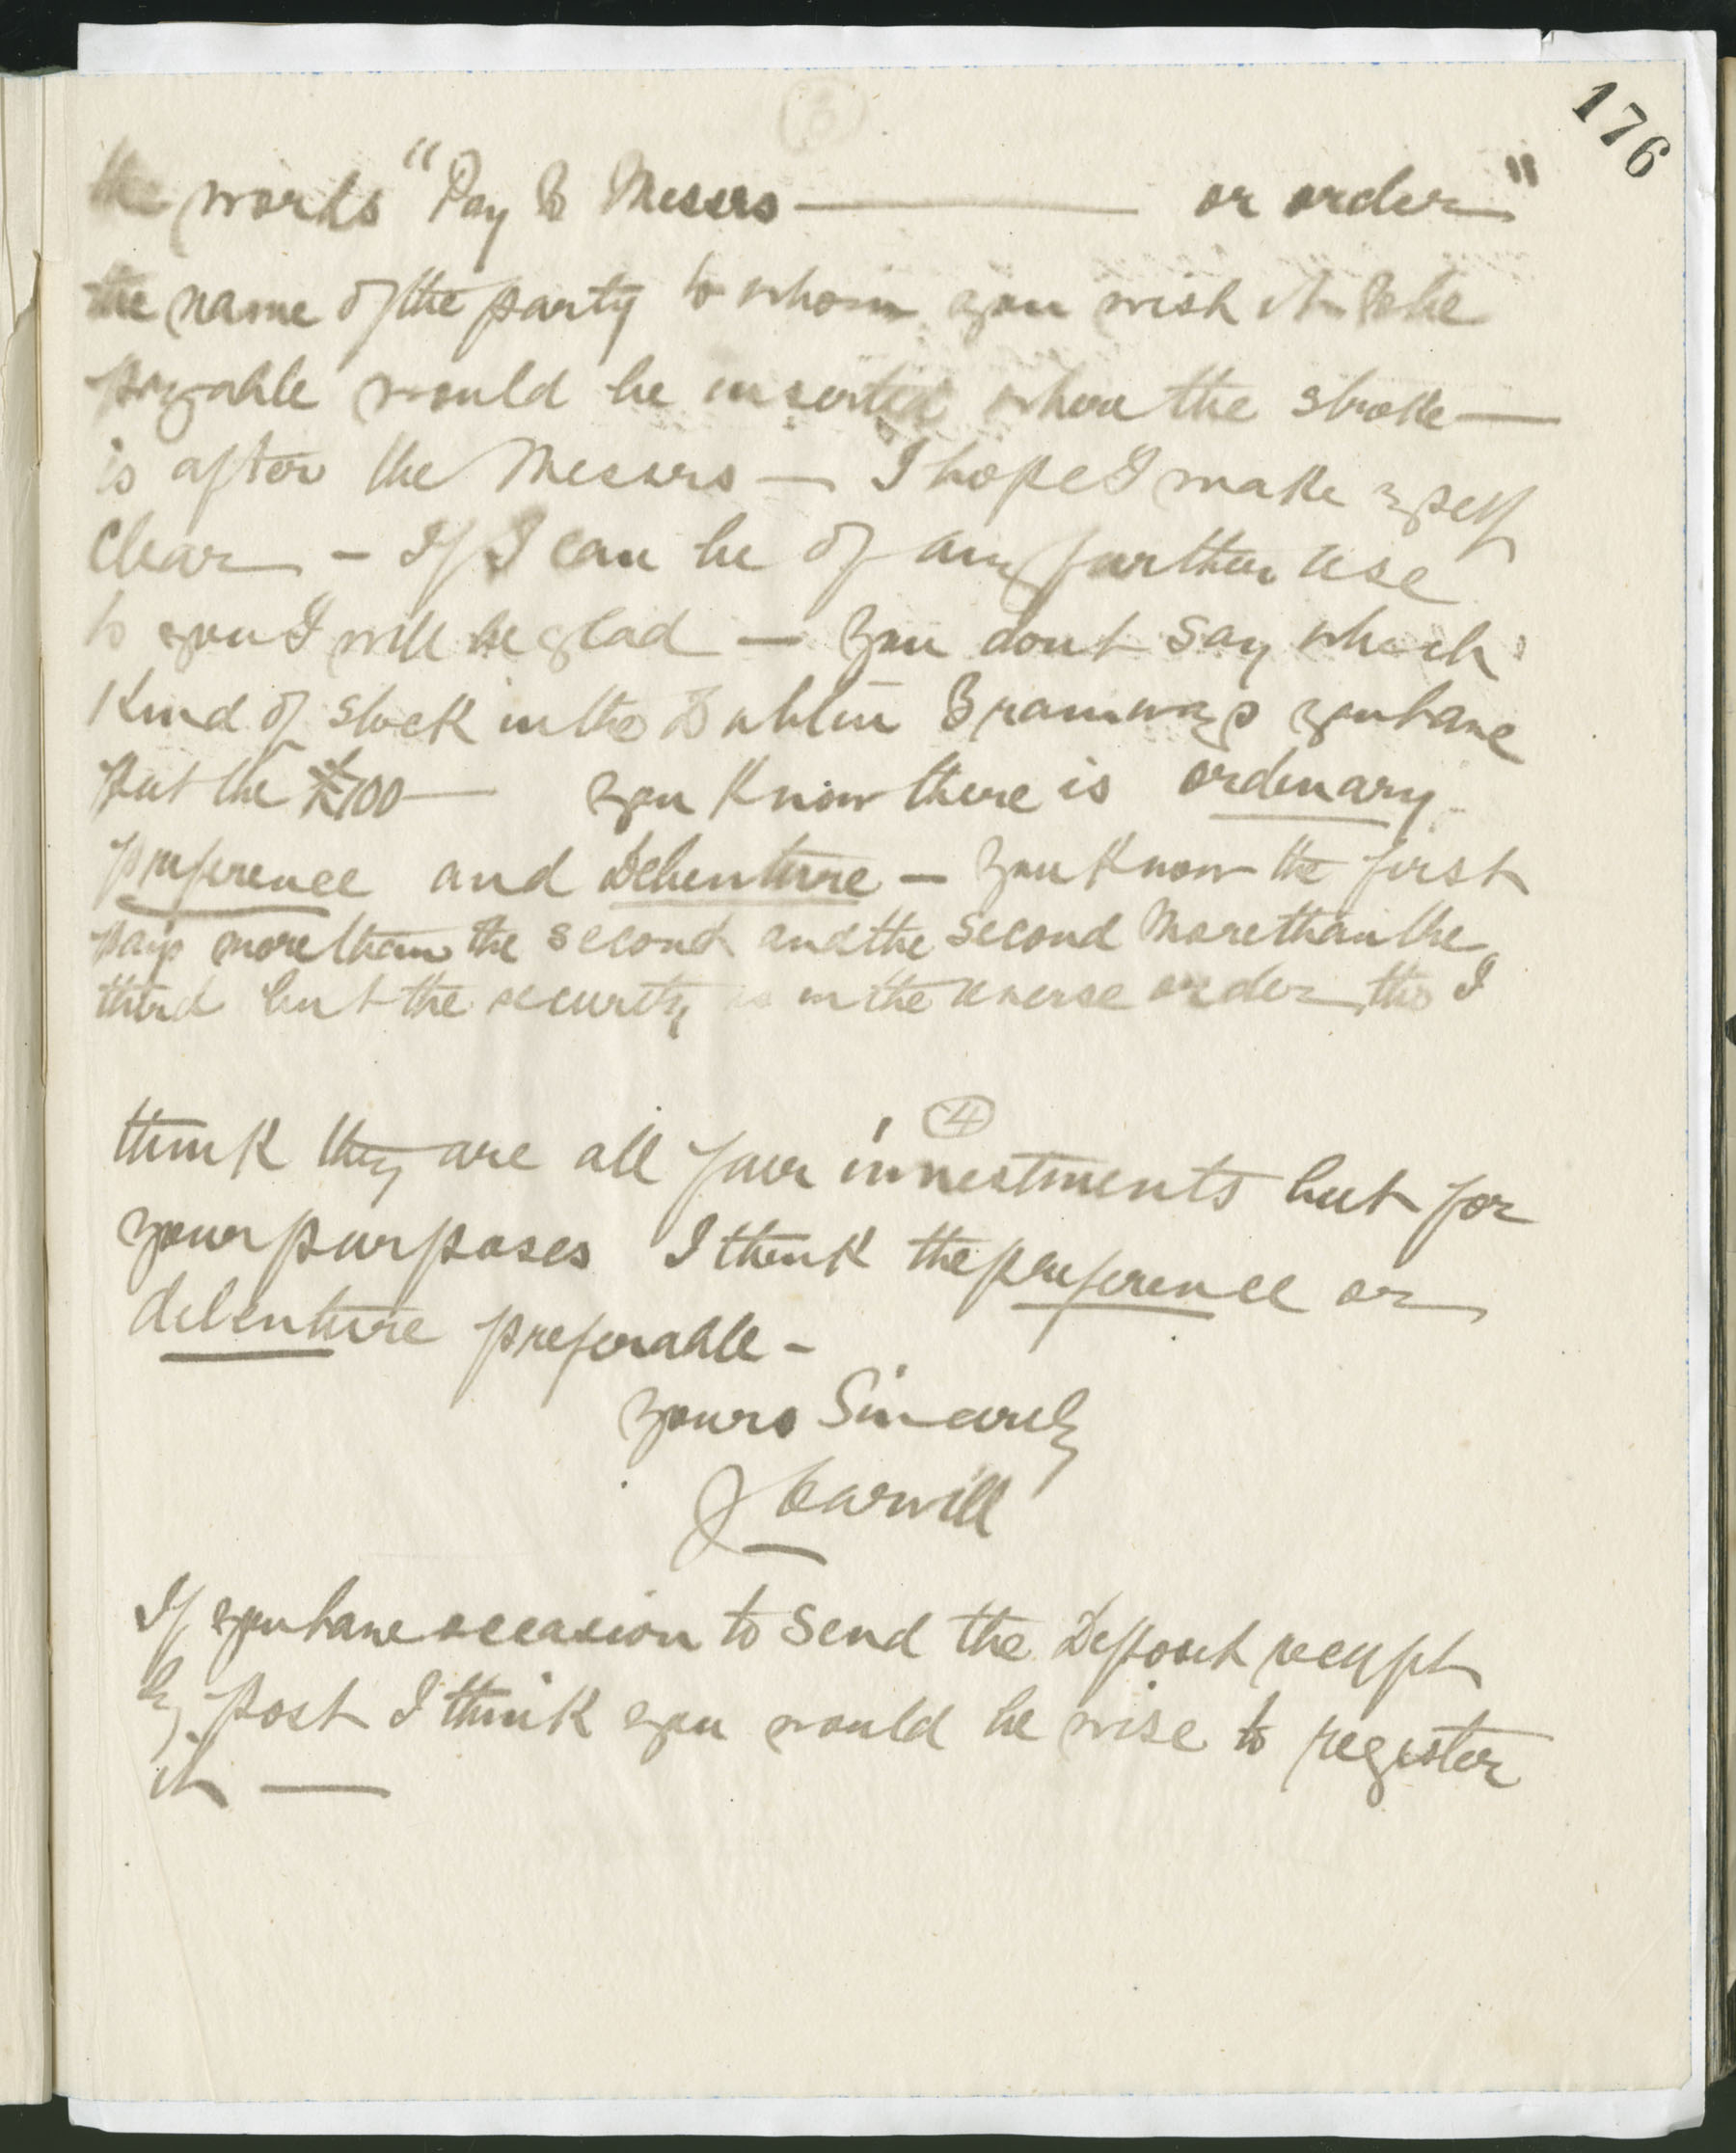 176
(3)
the words "Pay to Messrs ——— or order"
the name of the party to whom you wish it to be
payable would be inserted where the stroke —
is after the Messrs — I hope I make myself
clear — If I can be of any further use
to you I will be glad — You dont say which
Kind of stock in the Dublin Tramways you have
put the £100 — you know there is ordinary
preference and Debenture — You know the first
pays more than the second and the second more than the
third but the security is in the reverse order tho I
(4)
think they are all fair investments but for
your purposes I think the preference or
debenture preferable —
Yours Sincerely
J Carvill
If you have occasion to send the Deposit receipt
by post I think you would be wise to register
it —